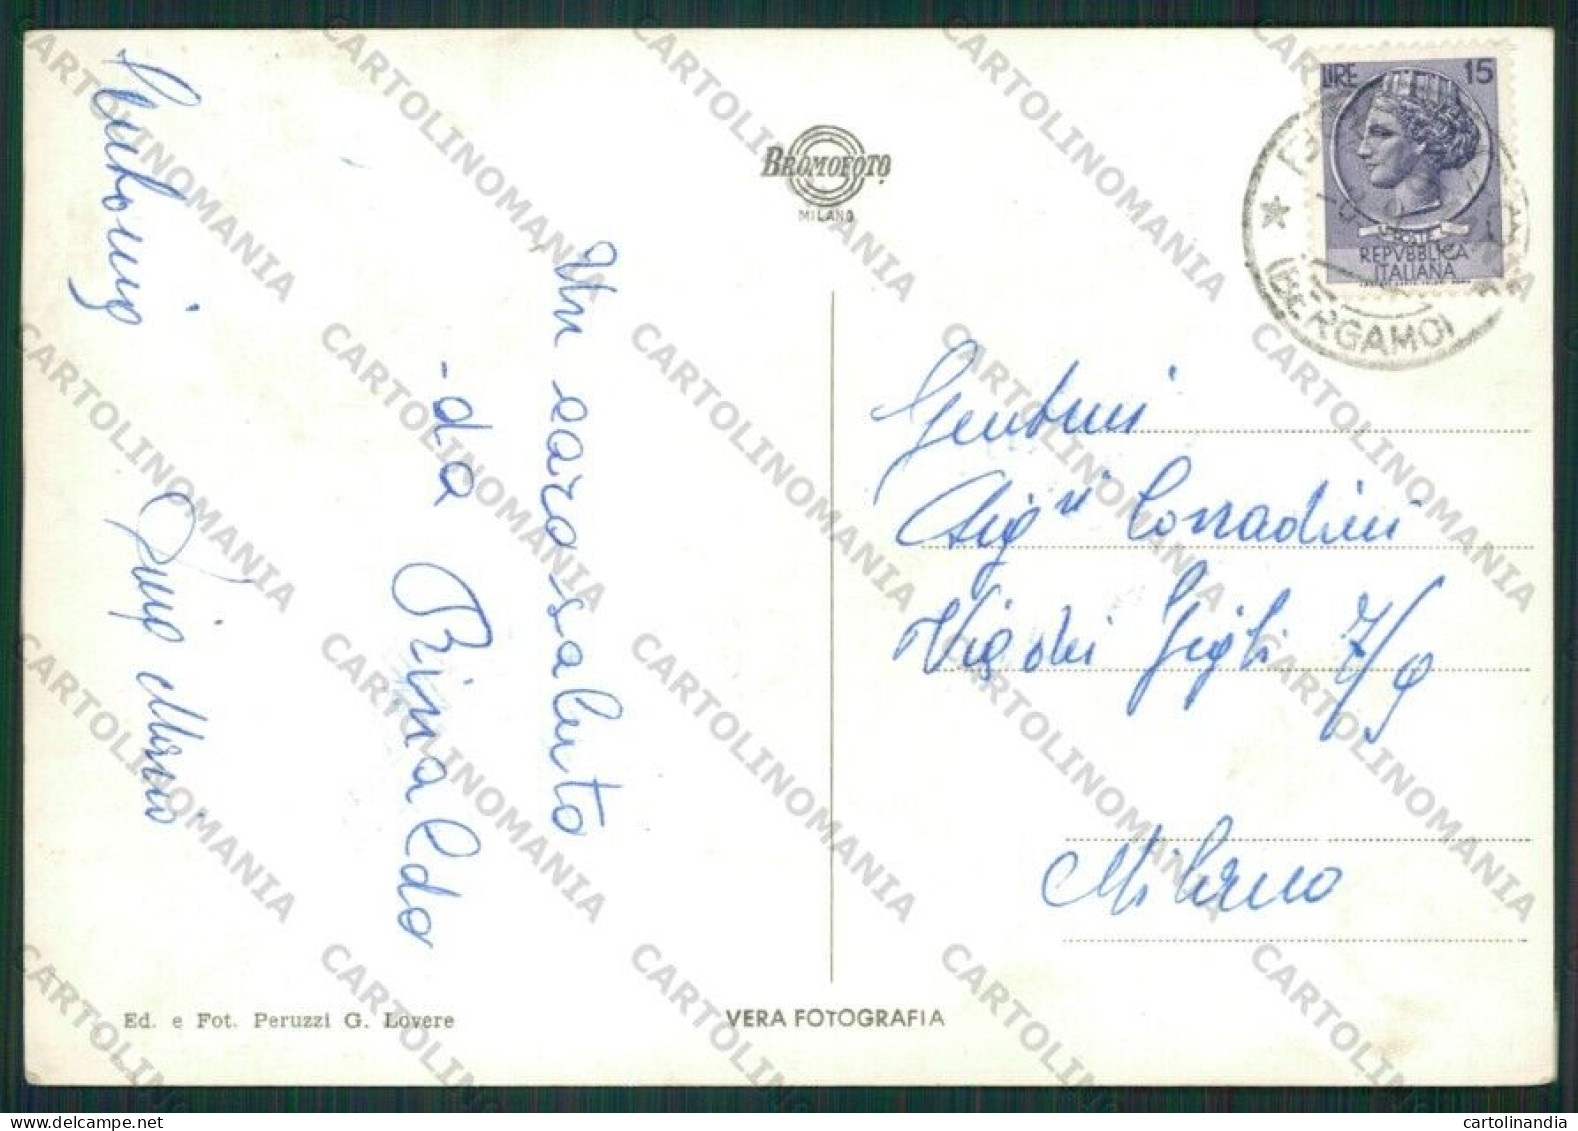 LIRE 15
POSTE
REPVBBLICA
ITALIANA
(BERGAMO)
BROMOFOTO
MILANO
Un caro saluto
- da Rinaldo
Luigi
Gentmi
Sigri Corradini
Via dei Gigli 7/9
Milano
Ed. e Fot. Peruzzi G. Lovere
VERA FOTOGRAFIA
CARTOLINOMANIA
www.delcampe.net
cartolinandia